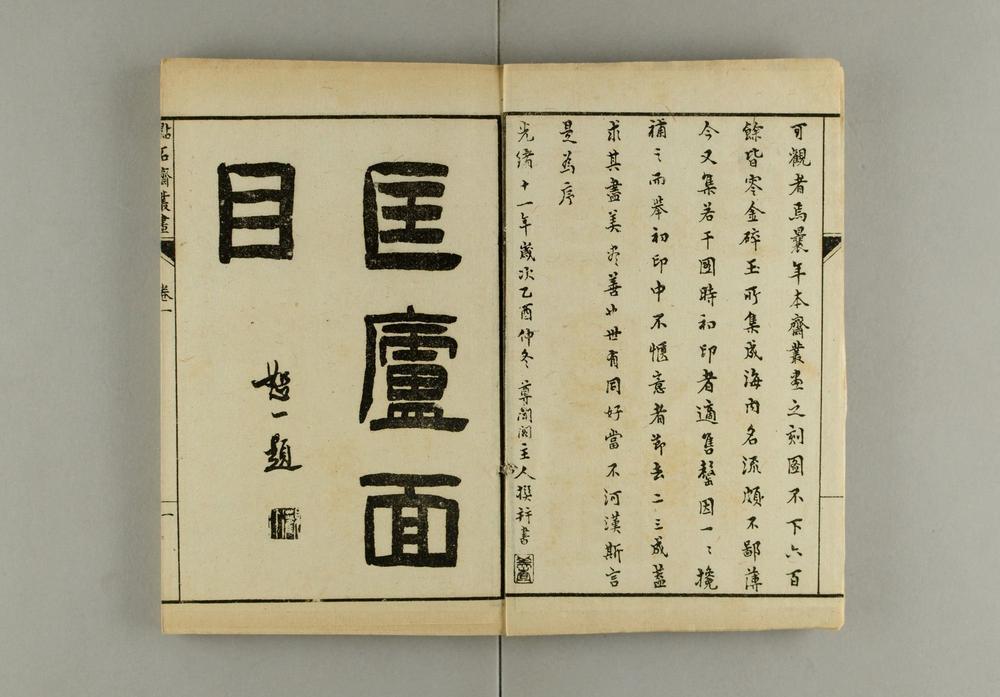 可觀者焉曩年本齋叢畫之刻圖不下六百
餘皆零金碎玉所集成海內名流頗不鄙薄
今又集若干圖時初印者適售罄因一〻攙
補之而舉初印中不愜意者節去二三成葢
求其盡美盡善以世有同好當不河漢斯言
是為序
光緒十一年歲次乙酉仲冬尊聞閣主人撰并書
匡廬面
目
哲一題
點石齋叢畫
卷一
一